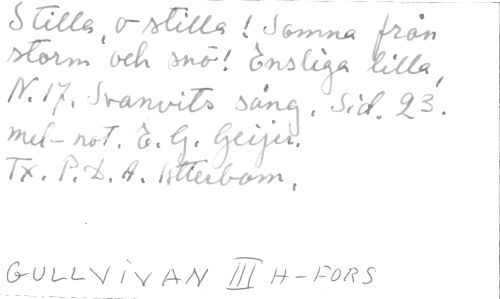 Stilla, o stilla! Somna från
storm och snö! Ensliga lilla,
N. 17. Svanvits sång. Sid. 23.
mel-not. E. G. Geijer.
Tx. P. D. A. Atterbom.
GULLVIVAN III H-FORS